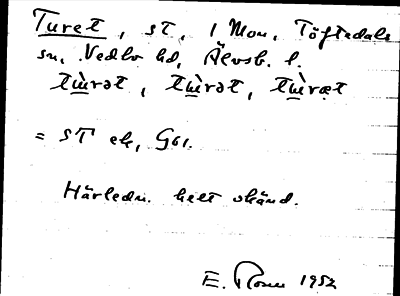 Turet, st, 1 Mon, Töftedals
sn, Vedbo hd, Älvsb. l.
tɯ̀rət, tɯ̀rət, tɯ̀ræt
= ST ek, Gsr.
Härledn. helt okänd.
E. Rosén 1952